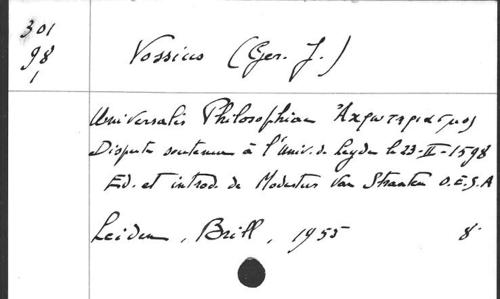 301
98
1
Vossius (Ger. J.)
Universalis Philosophiae Ἀκρωτηριασμος
Dispute soutenue à l'Univ. de Leyde le 23-II-1598
Ed. et introd. de Modestus Van Straaten O.E.S.A
Leiden, Brill, 1955 8°